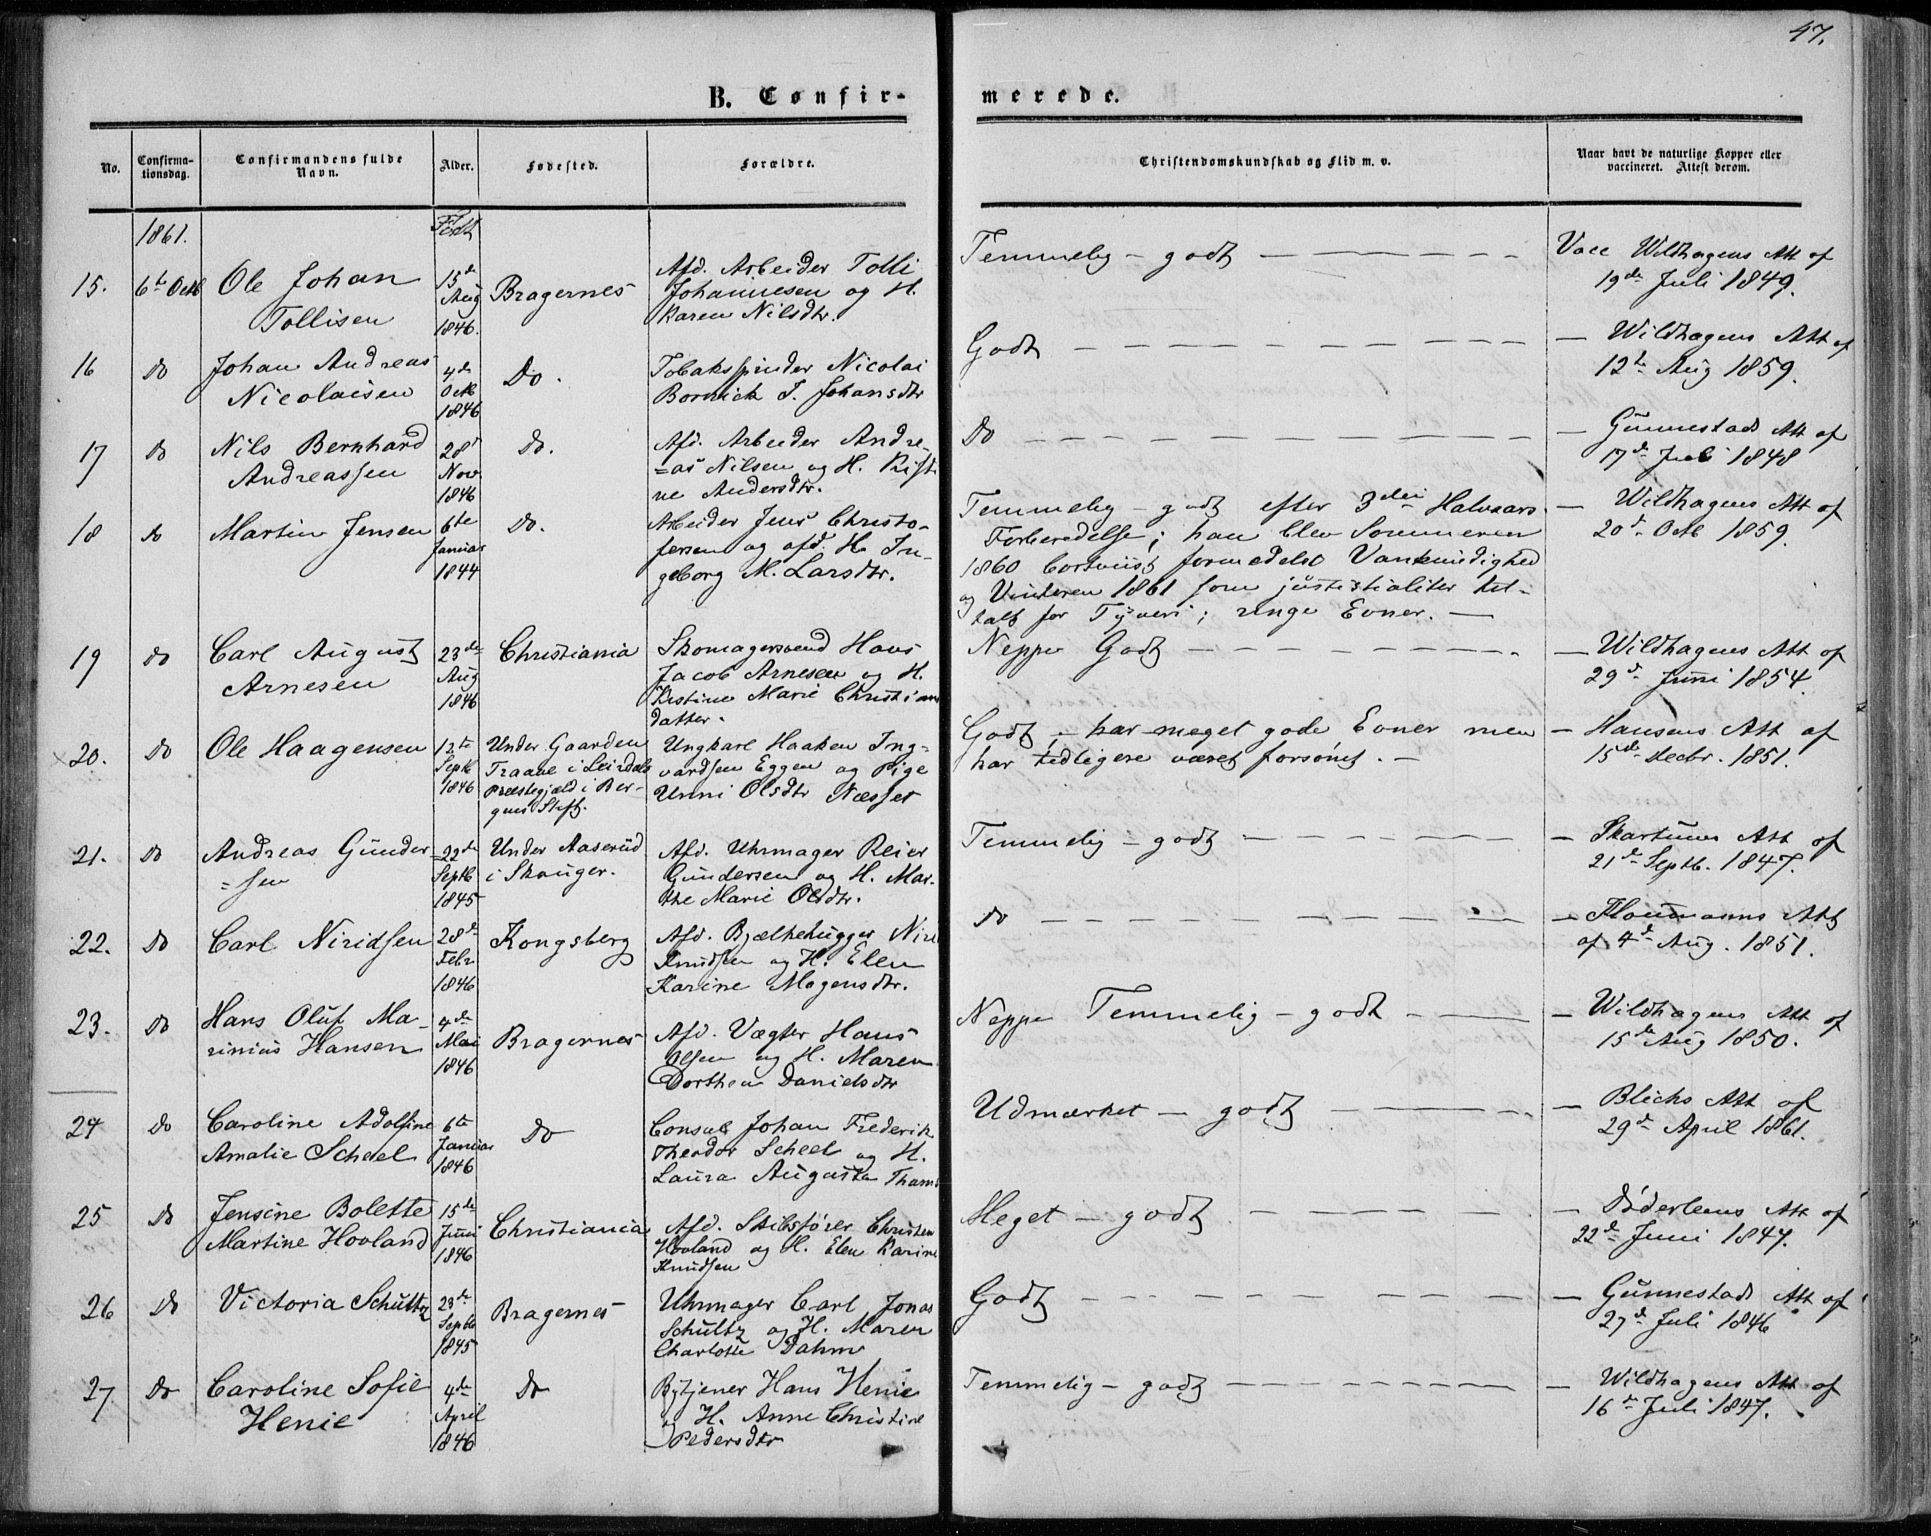 47.
B. Confirmerede.
No.
Confirma-
tionsdag.
Confirmandens fulde
Navn.
Alder.
Fødested.
Forældre.
Christendomskundskab og Flid m. v.
Naar havt de naturlige Kopper eller
vaccineret. Attest derom.
1861.
Født
15. 6te Octb Ole Johan Tollisen 15de Aug 1846. Bragernes Afd. Arbeider Tolli Johannesen og H. Karen Nilsdtr. Temmelig - godt Vacc Wildhagens Att af 19de Juli 1849.
16 do Johan Andreas Nicolaisen 4de Octb 1846 Do. Tobakspinder Nicolai J. Johansdtr Godt — Wildhagens Att af 12te Aug 1859.
17 do Nils Bernhard Andreassen 28d Nov. 1846 do. Afd. Arbeider Andre- =as Nilsen og H. Kristi ne Andersdtr. Do — Gunnestads Att af 17de Juli 1848
18 do Martin Jensen 6te Januar 1844 Do. Arbeider Jens Christo- fersen og afd. H. In- geborg M. Larsdtr. Temmelig - godt efter 3die Halvaars Forberedelse; han blev Sommeren 1860 bortviist formedelst Vankundighed og Vinteren 1861 som justitialiter til- talt for Tyveri; ringe Evner. — — Wildhagens Att af 20de Octb 1859.
19 do Carl August Arnesen 23de Aug 1846 Christiania Skomagersvend Hans Jacob Arnesen og H. Kistine Marie Christians datter. Neppe Godt — Wildhagens Att af 29de Juni 1854.
20. Do Ole Haagensen 12te Septb 1846 Under Gaarden Traave i Leirdals Præstegjæld i Ber- gens Stift. Ungkarl Haaken Ing- vardsen Eggen og Pige Unni Olsdtr Næsset Godt, — har meget gode Evner men har tidligere været forsømt. — — Hansens Att af 15de Decbr. 1851.
21. do Andreas Gunder =sen 22de Septb 1845 Under Aaserud i Skouger. Afd. Uhrmager Reier Gundersen og H. Mar- the Marie Olsdtr. Temmelig - godt — Skartums Att af 21de Septb. 1847.
22. do Carl Niridsen 28de Febr 1846 Kongsberg Afd. Bjælkehugger Niri Knudsen og H. Elen Karine Mogensdtr. do — Att af 4de Aug. 1851.
23. do Hans Oluf Ma- rinius Hansen 4de Mai 1846 Bragernes Afd. Vægter Hans Olsen og H. Maren Dorthea Danielsdtr Neppe Temmelig - godt — Wildhagens Att af 15de Aug 1850.
24 do Caroline Adolfine Amalie Scheel 6te Januar 1846 Do Consul Johan Frederik Theodor Scheel og H. Laura Augusta Thams Udmærket - godt — Blichs Att af 29de April 1861.
25 do Jensine Bolette Martine Hovland 15de Juni 1846 Christiania Afd. Skibsfører Christen Hovland og H. Elen Karine Knudsen Meget - godt — Döderleins Att af 22de Juni 1847.
26 Do Victoria Schultz 23de Septb 1845 Bragernes Uhrmager Carl Jonas Schultz og H. Maren Charlotte Dahm Godt — Gunnestads Att af 27de Juli 1846
27 Do Caroline Sofie Henie 4de April 1846 Do Bytjener Hans Henie og H. Anne Christine Pedersdtr Temmelig - godt — Wildhagens Att af 16de Juli 1847.